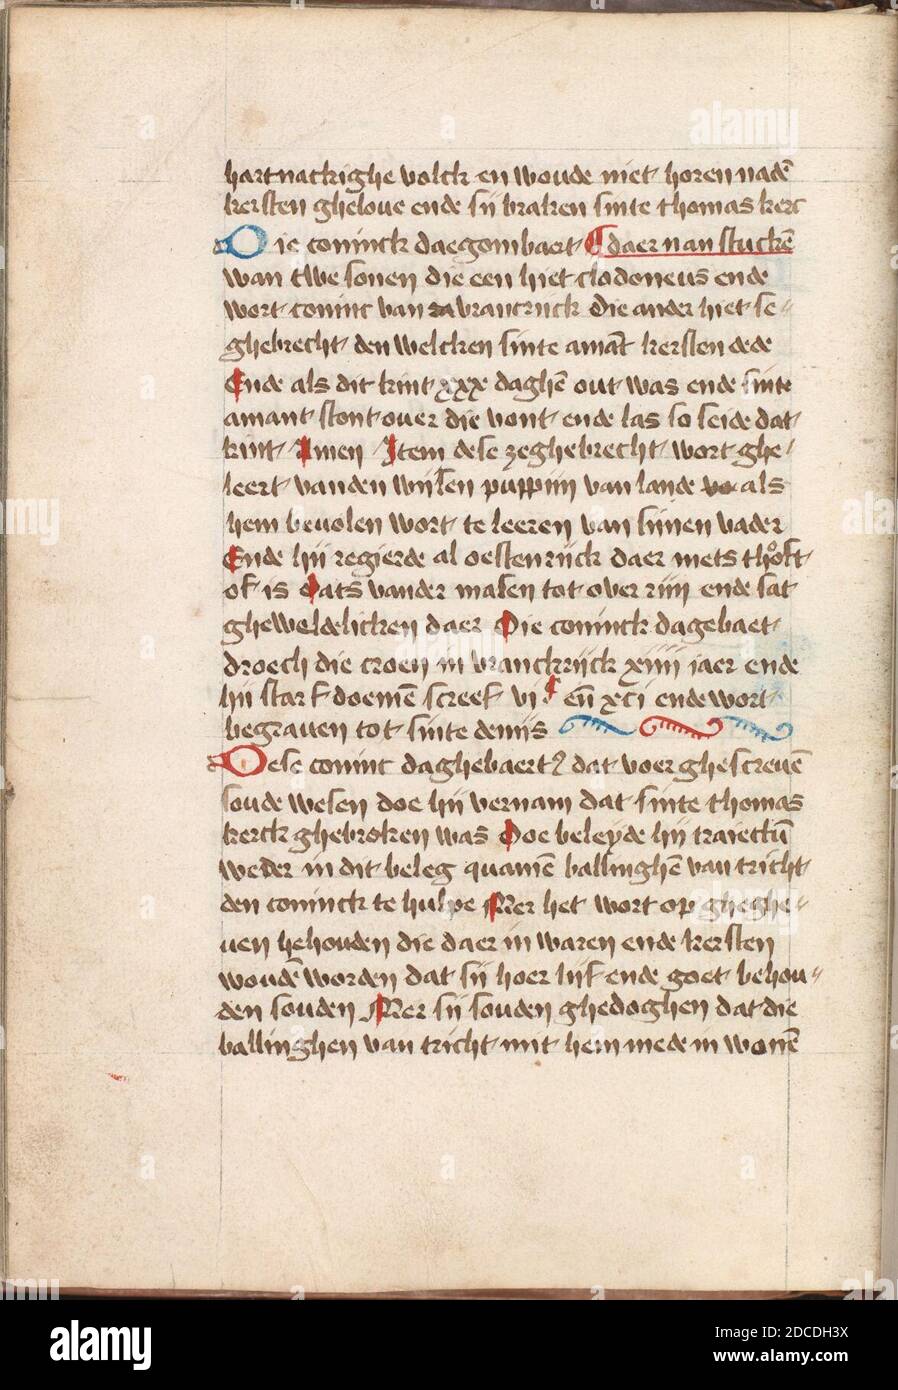 hartnackighe volck en woude niet horen nadē
kersten ghelove ende sij braken sinte thomas kerc
Die coninck daegombaert daer nan stuckē
wan twe sonen die een hiet clodoneus ende
wort coninc van vrancrijck die ander hiet se〃
ghebrecht den welcken sinte amāt kersten dede
Ende als dit kint xxx daghē out was ende sinte
amant stont over die vont ende las so seide dat
kint Amen Item dese zeghebrecht wort ghe/
leert vanden wijsen puppijn van lande als
hem bevolen wort te leeren van sijnen vader
Ende hij regierde al oestenrijck daer mets thoft
of is Dats vander masen tot over rijn ende sat
gheweldelicken daer Die coninck dagebaet
droech die croen in vranckrijck xiiij iaer ende
hij starf doemē screef vi c eñ xci ende wort
begraven tot sinte denijs
Dese coninc daghebaert dat voer ghescrevē
soude wesen doe hij vernam dat sinte thomas
kerck ghebroken was Doe beleyde hij traiectū
weder in dit beleg quamē ballinghē van tricht
den coninck te hulpe Mer het wort op gheghe〃
ven behouden die daer in waren ende kersten
woudē worden dat sij hoer lijf ende goet behou〃
den souden Mer sij souden ghedoghen dat die
ballinghen van tricht mit hem mede in wonē
alamy
alamy
2DCDH3X
www.alamy.com